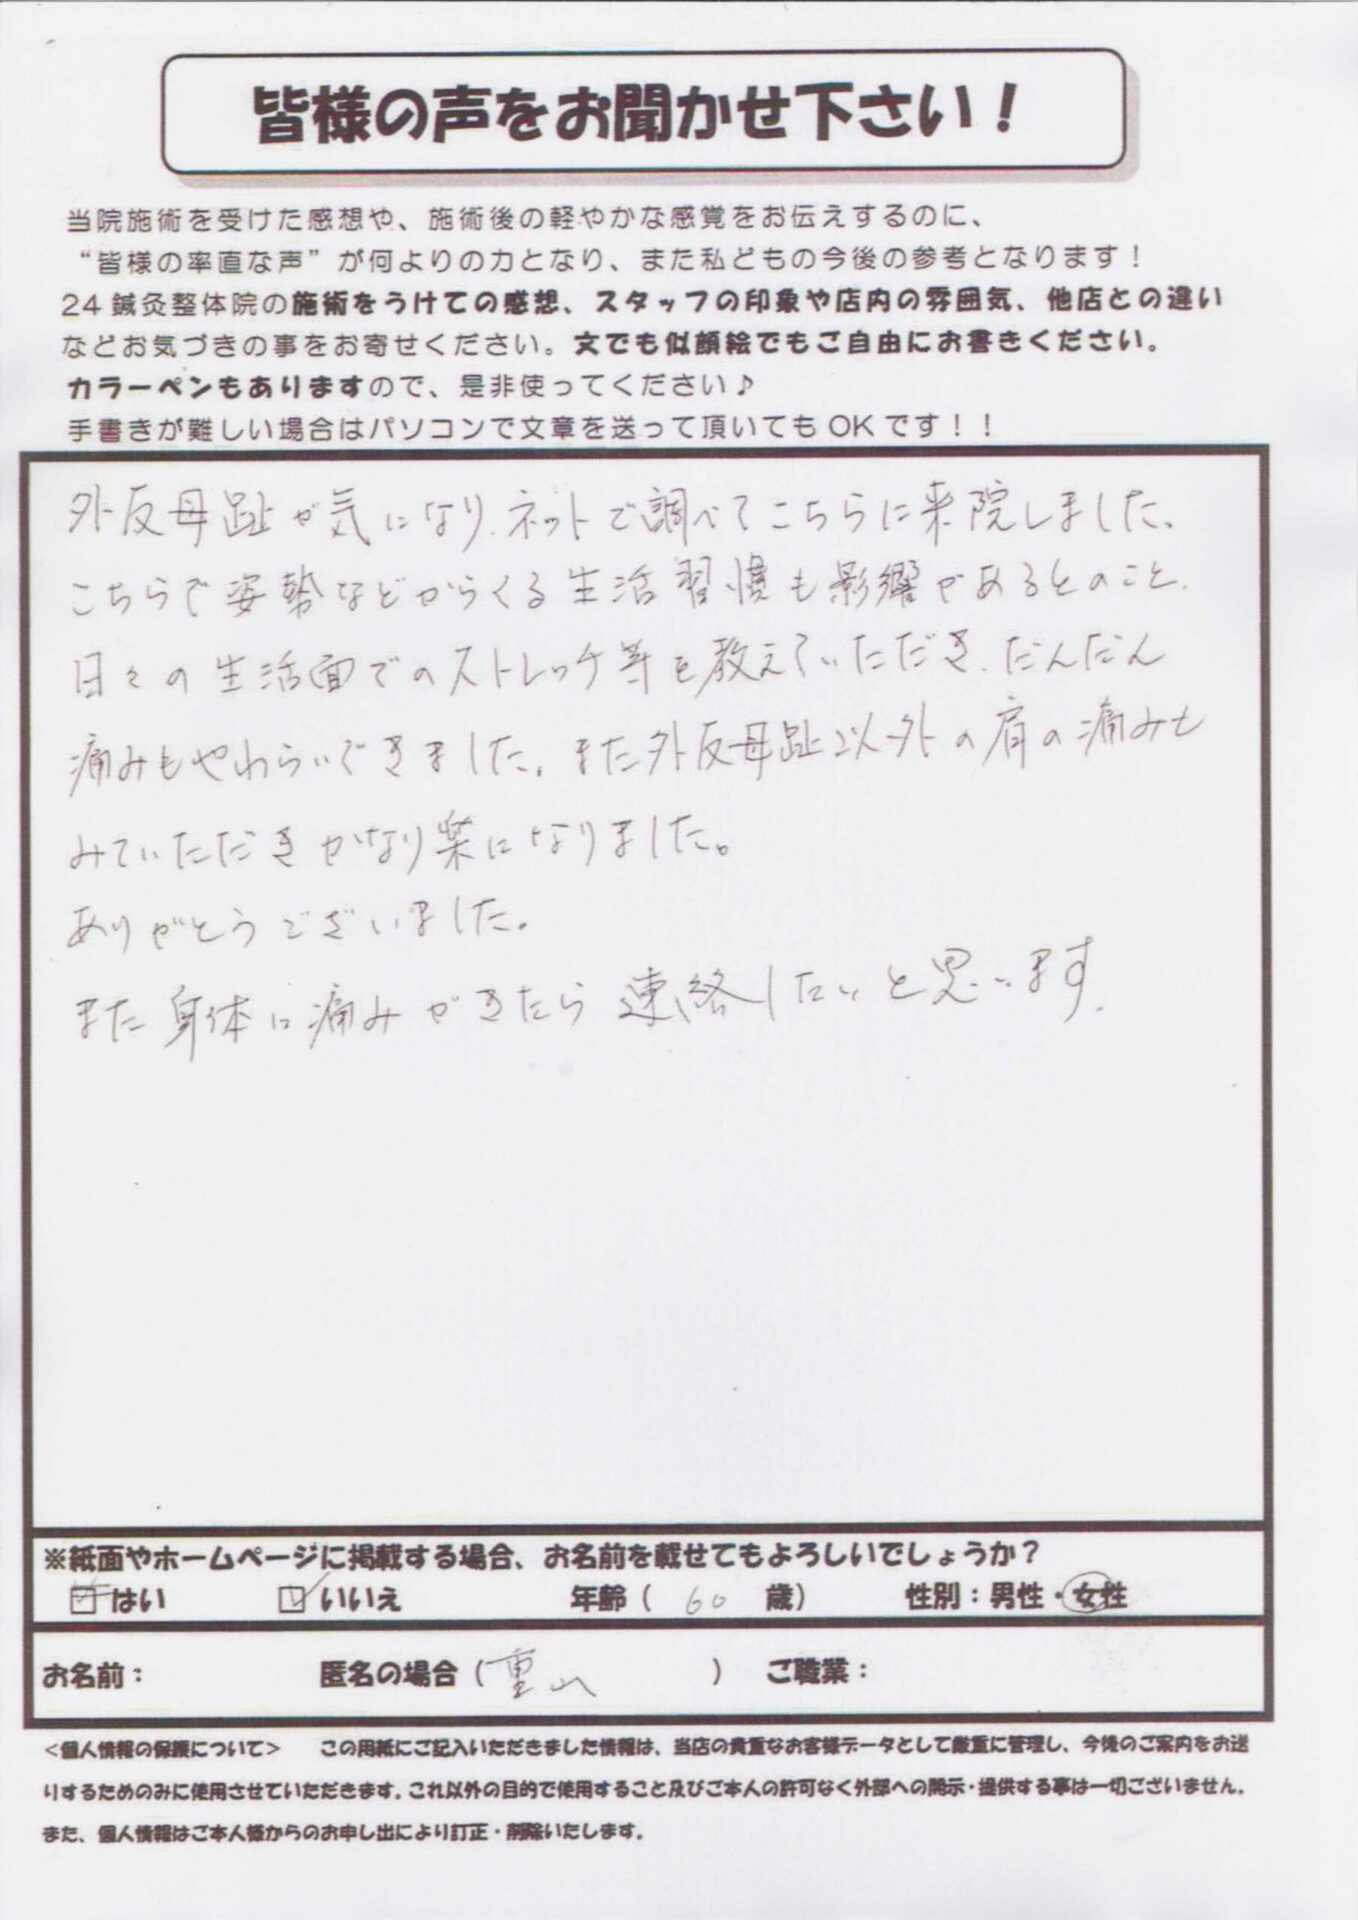 皆様の声をお聞かせ下さい！
当院施術を受けた感想や、施術後の軽やかな感覚をお伝えするのに、
“皆様の率直な声”が何よりの力となり、また私どもの今後の参考となります！
24鍼灸整体院の施術をうけての感想、スタッフの印象や店内の雰囲気、他店との違い
などお気づきの事をお寄せください。文でも似顔絵でもご自由にお書きください。
カラーペンもありますので、是非使ってください♪
手書きが難しい場合はパソコンで文章を送って頂いてもOKです！！
外反母趾が気になり、ネットで調べてこちらに来院しました。
こちらで姿勢などからくる生活習慣も影響があるとのこと、
日々の生活面でのストレッチ等を教えていただき、だんだん
痛みもやわらいできました。また外反母趾以外の肩の痛みも
みていただきかなり楽になりました。
ありがとうございました。
また身体に痛みがきたら連絡したいと思います。
※紙面やホームページに掲載する場合、お名前を載せてもよろしいでしょうか？
はい ☑いいえ 年齢（ 60 歳） 性別：男性・女性
お名前： 匿名の場合（重山 ） ご職業：
＜個人情報の保護について＞ この用紙にご記入いただきました情報は、当店の貴重なお客様データとして厳重に管理し、今後のご案内をお送
りするためのみに使用させていただきます。これ以外の目的で使用すること及びご本人の許可なく外部への開示・提供する事は一切ございません。
また、個人情報はご本人様からのお申し出により訂正・削除いたします。